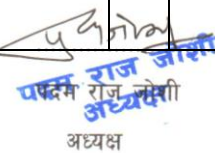 पदम राज जोशी
अध्यक्ष
पदम राज जोशी
अध्यक्ष